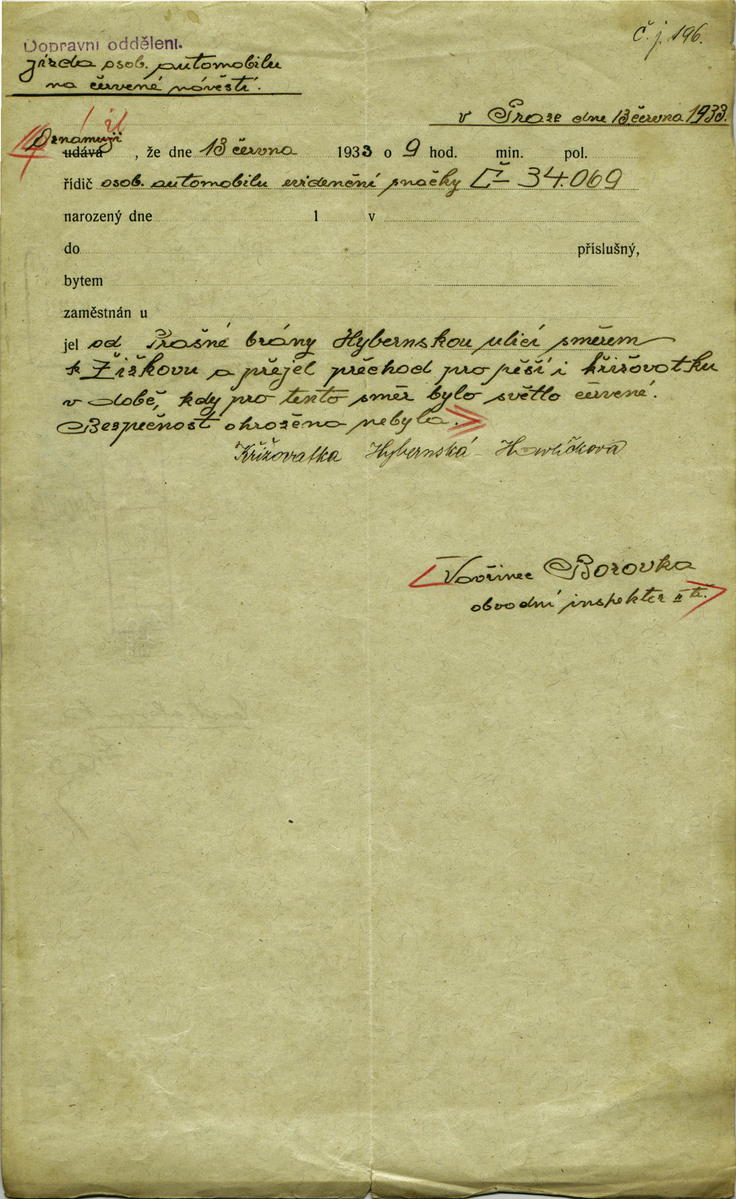 Dopravní oddělení.
č. j. 196.
jízda osob. automobilu
na červené návěstí.
v Praze dne 13 června 1933.
Oznamuji
udává , že dne 13 června 1933 o 9 hod. min. pol.
řídič osob. automobilu evidenční značky Č-34.069
narozený dne 1 v
do příslušný,
bytem
zaměstnán u
jel od Prašné brány Hybernskou ulicí směrem
k Žižkovu a přejel přechod pro pěší i křižovatku
v době, kdy pro tento směr bylo světlo červené.
Bezpečnost ohrožena nebyla.
Křižovatka Hybernská - Havlíčkova
Vavřinec Borovka
obvodní inspektor II tř.